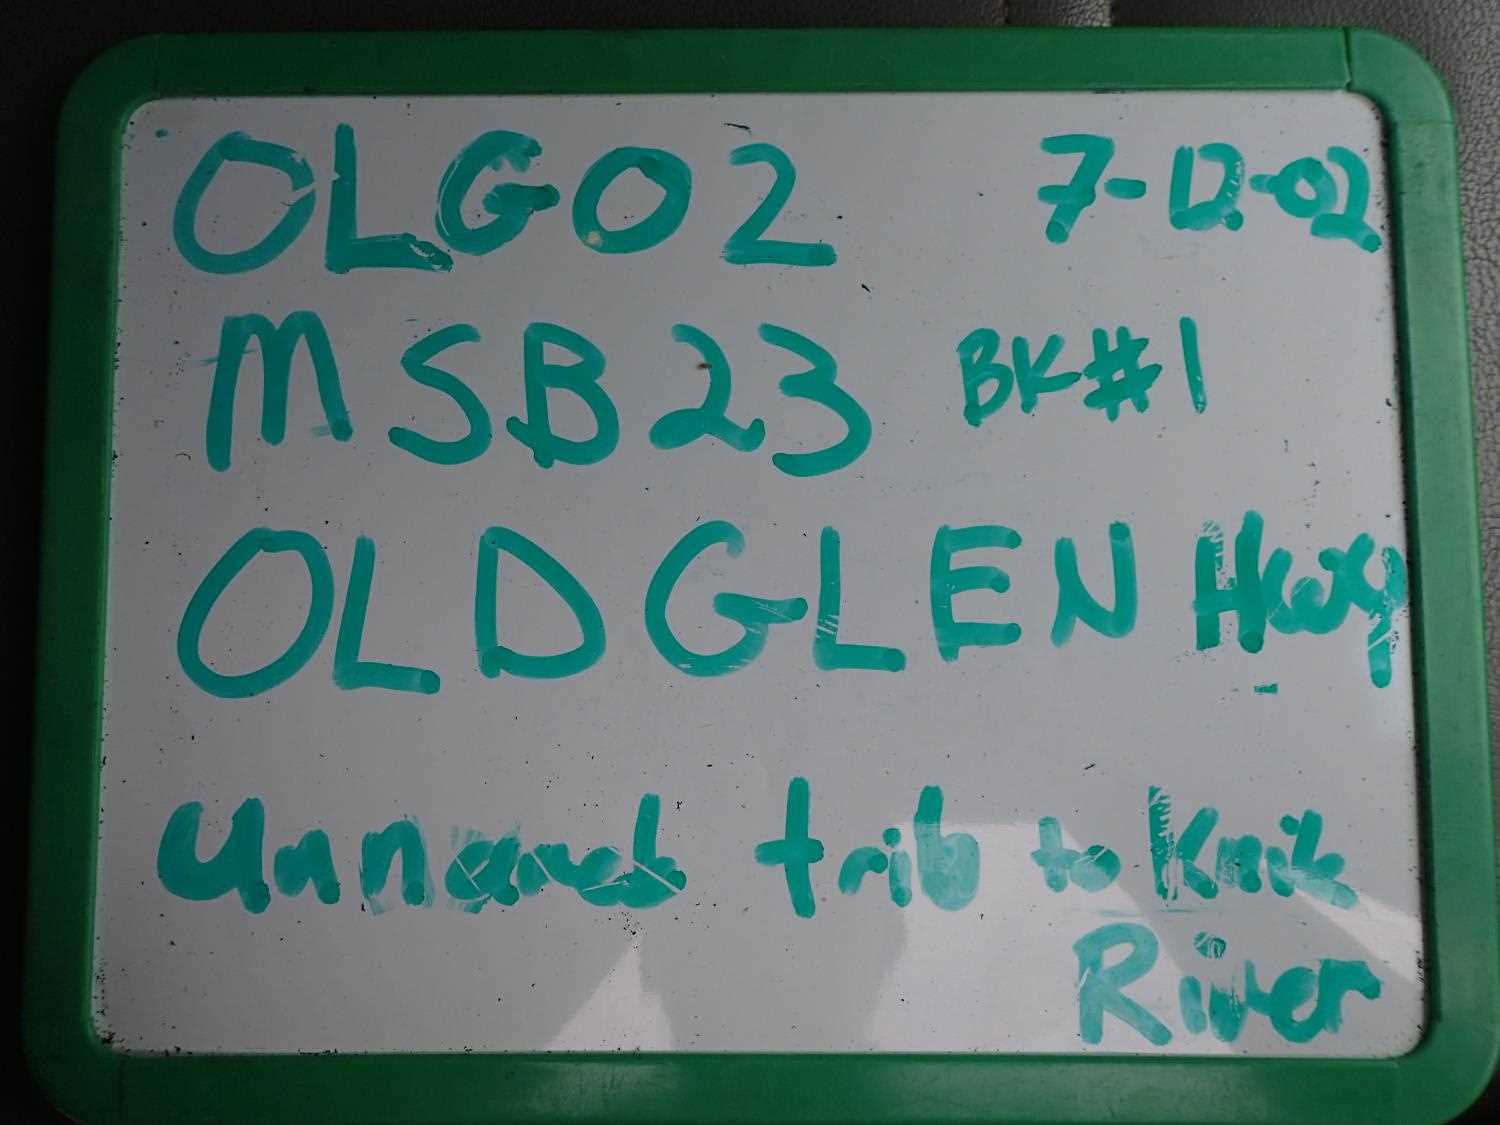 OLG02 7-12-02
MSB23 BK#1
OLD GLEN Hwy
Unnamed trib to Knik
River